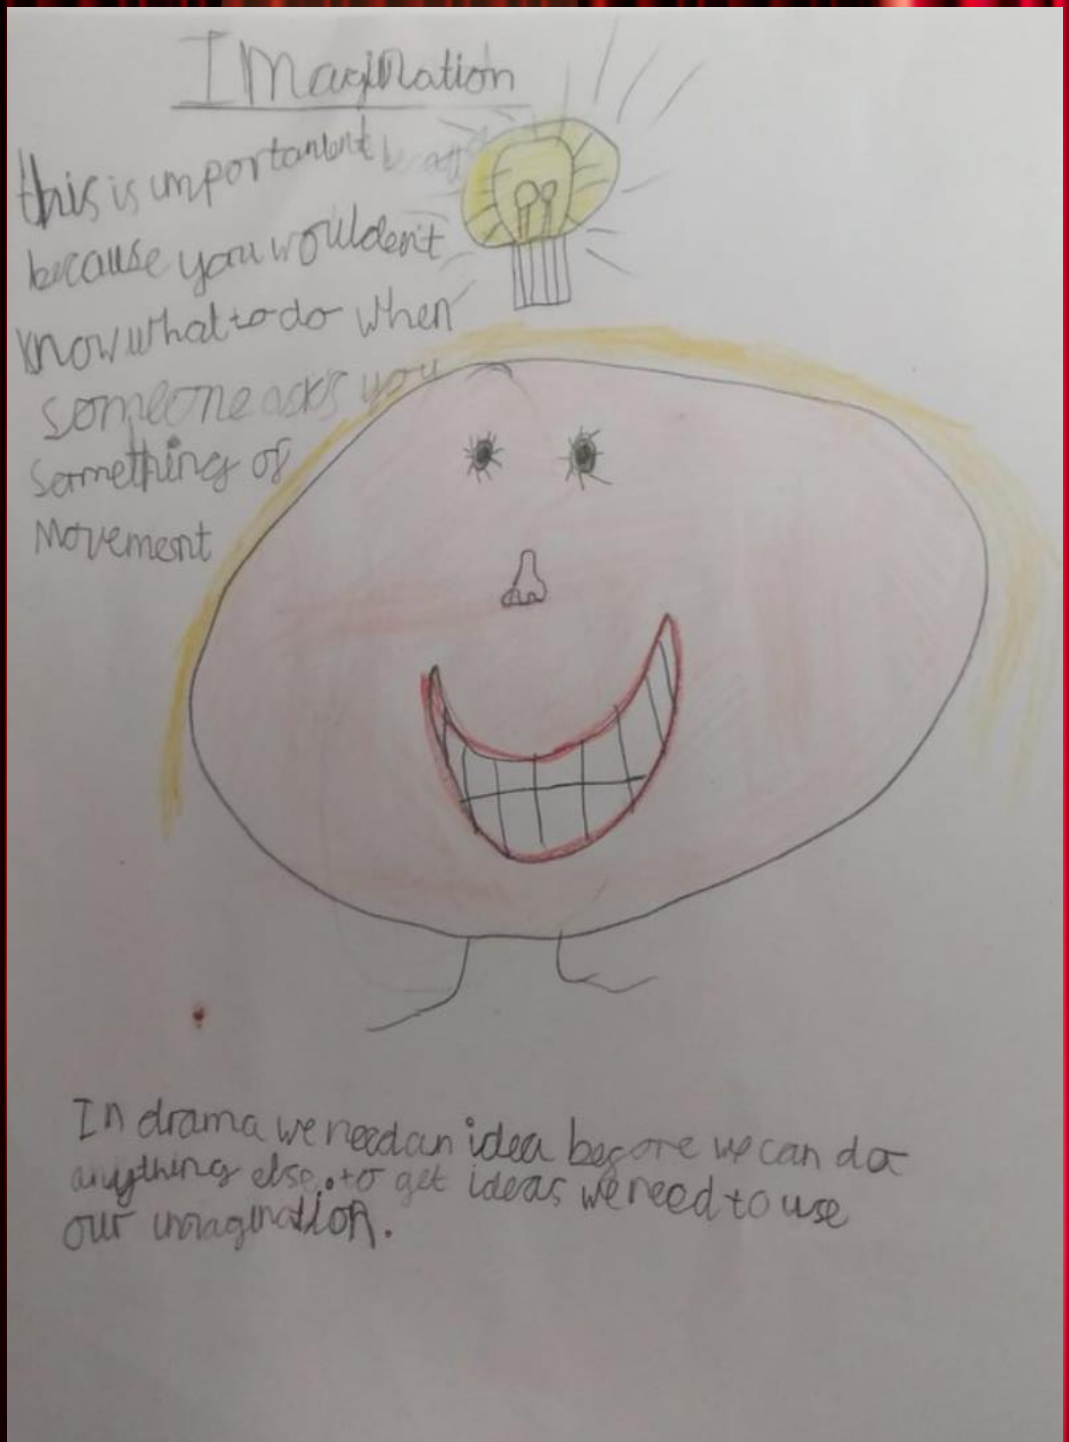 IMagination
this is importanent
because you wouldent
know what to do when
someone asks you
Something of
Movement
In drama we need an idea before we can do
anything else. to get ideas we need to use
our imagination.